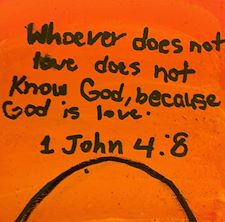 Whoever does not
love does not
Know God, because
God is love.
1 John 4:8